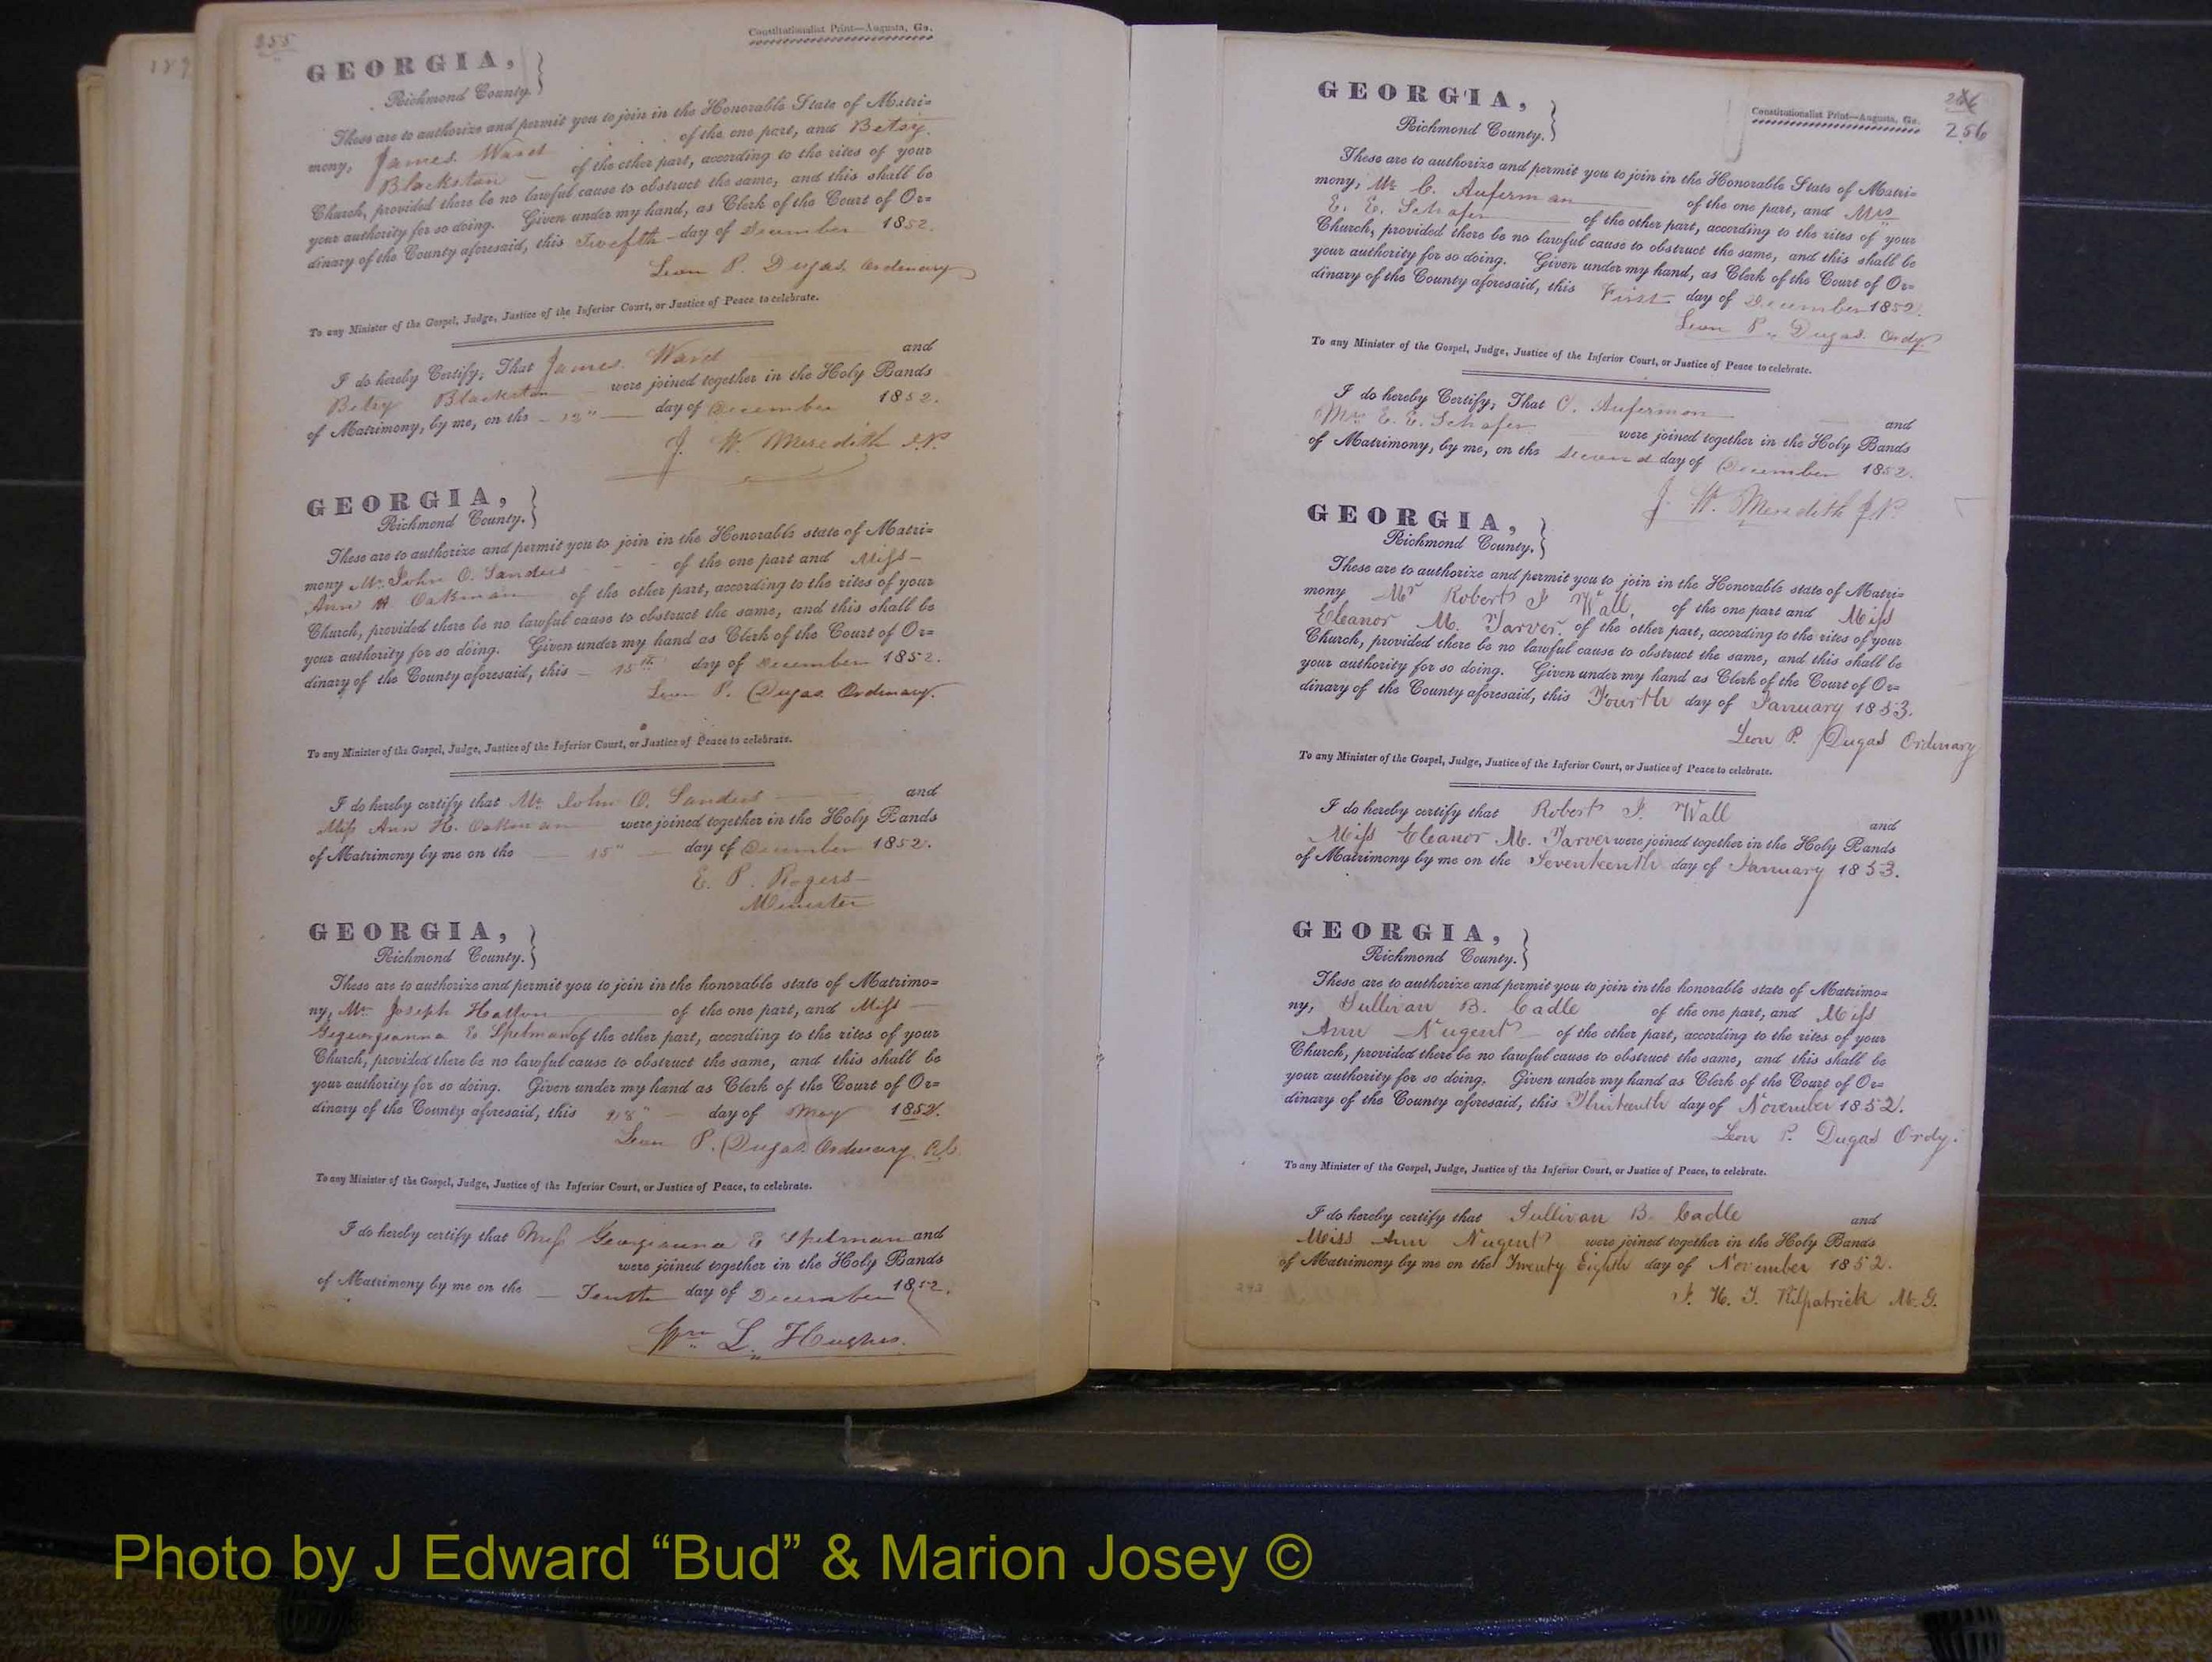 255
Constitutionalist Print—Augusta, Ga.
GEORGIA,
Richmond County.
These are to authorize and permit you to join in the Honorable State of Matri=
mony, James Ward of the one part, and Betsy
Blackston of the other part, according to the rites of your
Church, provided there be no lawful cause to obstruct the same, and this shall be
your authority for so doing. Given under my hand, as Clerk of the Court of Or=
dinary of the County aforesaid, this Twelfth day of December 1852.
Leon P. Dugas Ordinary
To any Minister of the Gospel, Judge, Justice of the Inferior Court, or Justice of Peace to celebrate.
I do hereby Certify, That James Ward and
Betsy Blackston were joined together in the Holy Bands
of Matrimony, by me, on the 12" day of December 1852.
J. W. Meredith J.P.
GEORGIA,
Richmond County.
These are to authorize and permit you to join in the Honorable state of Matri=
mony Mr. John O. Sanders of the one part and Miss
Ann H. Oakman of the other part, according to the rites of your
Church, provided there be no lawful cause to obstruct the same, and this shall be
your authority for so doing. Given under my hand as Clerk of the Court of Or=
dinary of the County aforesaid, this 15th day of December 1852.
Leon P. Dugas Ordinary.
To any Minister of the Gospel, Judge, Justice of the Inferior Court, or Justice of Peace to celebrate.
I do hereby certify that Mr. John O. Sanders and
Miss Ann H. Oakman were joined together in the Holy Bands
of Matrimony by me on the 15" day of December 1852.
E. P. Rogers
Minister
GEORGIA,
Richmond County.
These are to authorize and permit you to join in the honorable state of Matrimo=
ny, Mr. Joseph Hatton of the one part, and Miss
E. Spelman of the other part, according to the rites of your
Church, provided there be no lawful cause to obstruct the same, and this shall be
your authority for so doing. Given under my hand as Clerk of the Court of Or=
dinary of the County aforesaid, this day of May 1852.
Leon P. Dugas Ordinary
To any Minister of the Gospel, Judge, Justice of the Inferior Court, or Justice of Peace, to celebrate.
I do hereby certify that Miss Georgianna E Spelman and
were joined together in the Holy Bands
of Matrimony by me on the Tenth day of December 1852.
Wm L. Hughes.
256
Constitutionalist Print—Augusta, Ga.
GEORGIA,
Richmond County.
These are to authorize and permit you to join in the Honorable State of Matri=
mony, Mr C. Auferman of the one part, and Mrs
E. E. Schafer of the other part, according to the rites of your
Church, provided there be no lawful cause to obstruct the same, and this shall be
your authority for so doing. Given under my hand, as Clerk of the Court of Or=
dinary of the County aforesaid, this First day of December 1852.
Leon P. Dugas. Ordy.
To any Minister of the Gospel, Judge, Justice of the Inferior Court, or Justice of Peace to celebrate.
I do hereby Certify, That C. Auferman and
Mrs E. E. Schafer were joined together in the Holy Bands
of Matrimony, by me, on the second day of December 1852.
J. W. Meredith J.P.
GEORGIA,
Richmond County.
These are to authorize and permit you to join in the Honorable state of Matri=
mony Mr Robert J Wall of the one part and Miss
Eleanor M. Tarver of the other part, according to the rites of your
Church, provided there be no lawful cause to obstruct the same, and this shall be
your authority for so doing. Given under my hand as Clerk of the Court of Or=
dinary of the County aforesaid, this Fourth day of January 1853.
Leon P. Dugas Ordinary
To any Minister of the Gospel, Judge, Justice of the Inferior Court, or Justice of Peace to celebrate.
I do hereby certify that Robert J. Wall and
Miss Eleanor M. Tarver were joined together in the Holy Bands
of Matrimony by me on the Seventeenth day of January 1853.
GEORGIA,
Richmond County.
These are to authorize and permit you to join in the honorable state of Matrimo=
ny, Sullivan B. Cadle of the one part, and Miss
Ann Nugent of the other part, according to the rites of your
Church, provided there be no lawful cause to obstruct the same, and this shall be
your authority for so doing. Given under my hand as Clerk of the Court of Or=
dinary of the County aforesaid, this Thirteenth day of November 1852.
Leon P. Dugas Ordy.
To any Minister of the Gospel, Judge, Justice of the Inferior Court, or Justice of Peace, to celebrate.
I do hereby certify that Sullivan B. Cadle and
Miss Ann Nugent were joined together in the Holy Bands
of Matrimony by me on the Twenty Eighth day of November 1852.
J. H. T. Kilpatrick M.G.
Photo by J Edward “Bud” & Marion Josey ©